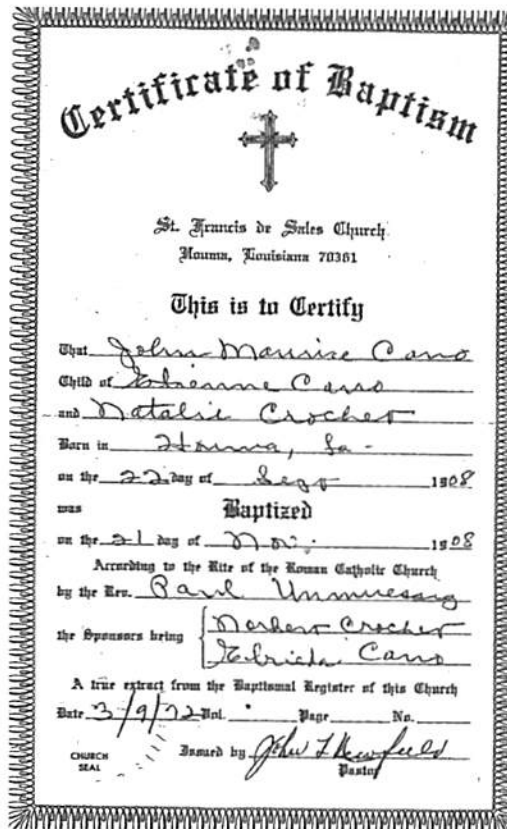 Certificate of Baptism
St. Francis de Sales Church
Houma, Louisiana 70361
This is to Certify
That John Maurice Cano
Child of Etienne Cano
and Natalie Crochet
Born in Houma, La-
on the 22 day of Sept 1908
was Baptized
on the 21 day of Nov. 1908
According to the Rite of the Roman Catholic Church
by the Rev. Paul
the Sponsors being Norbert Crochet
Cano
A true extract from the Baptismal Register of this Church
Date 3/9/72 Vol. Page No.
Issued by John L Newfield
Pastor
CHURCH
SEAL